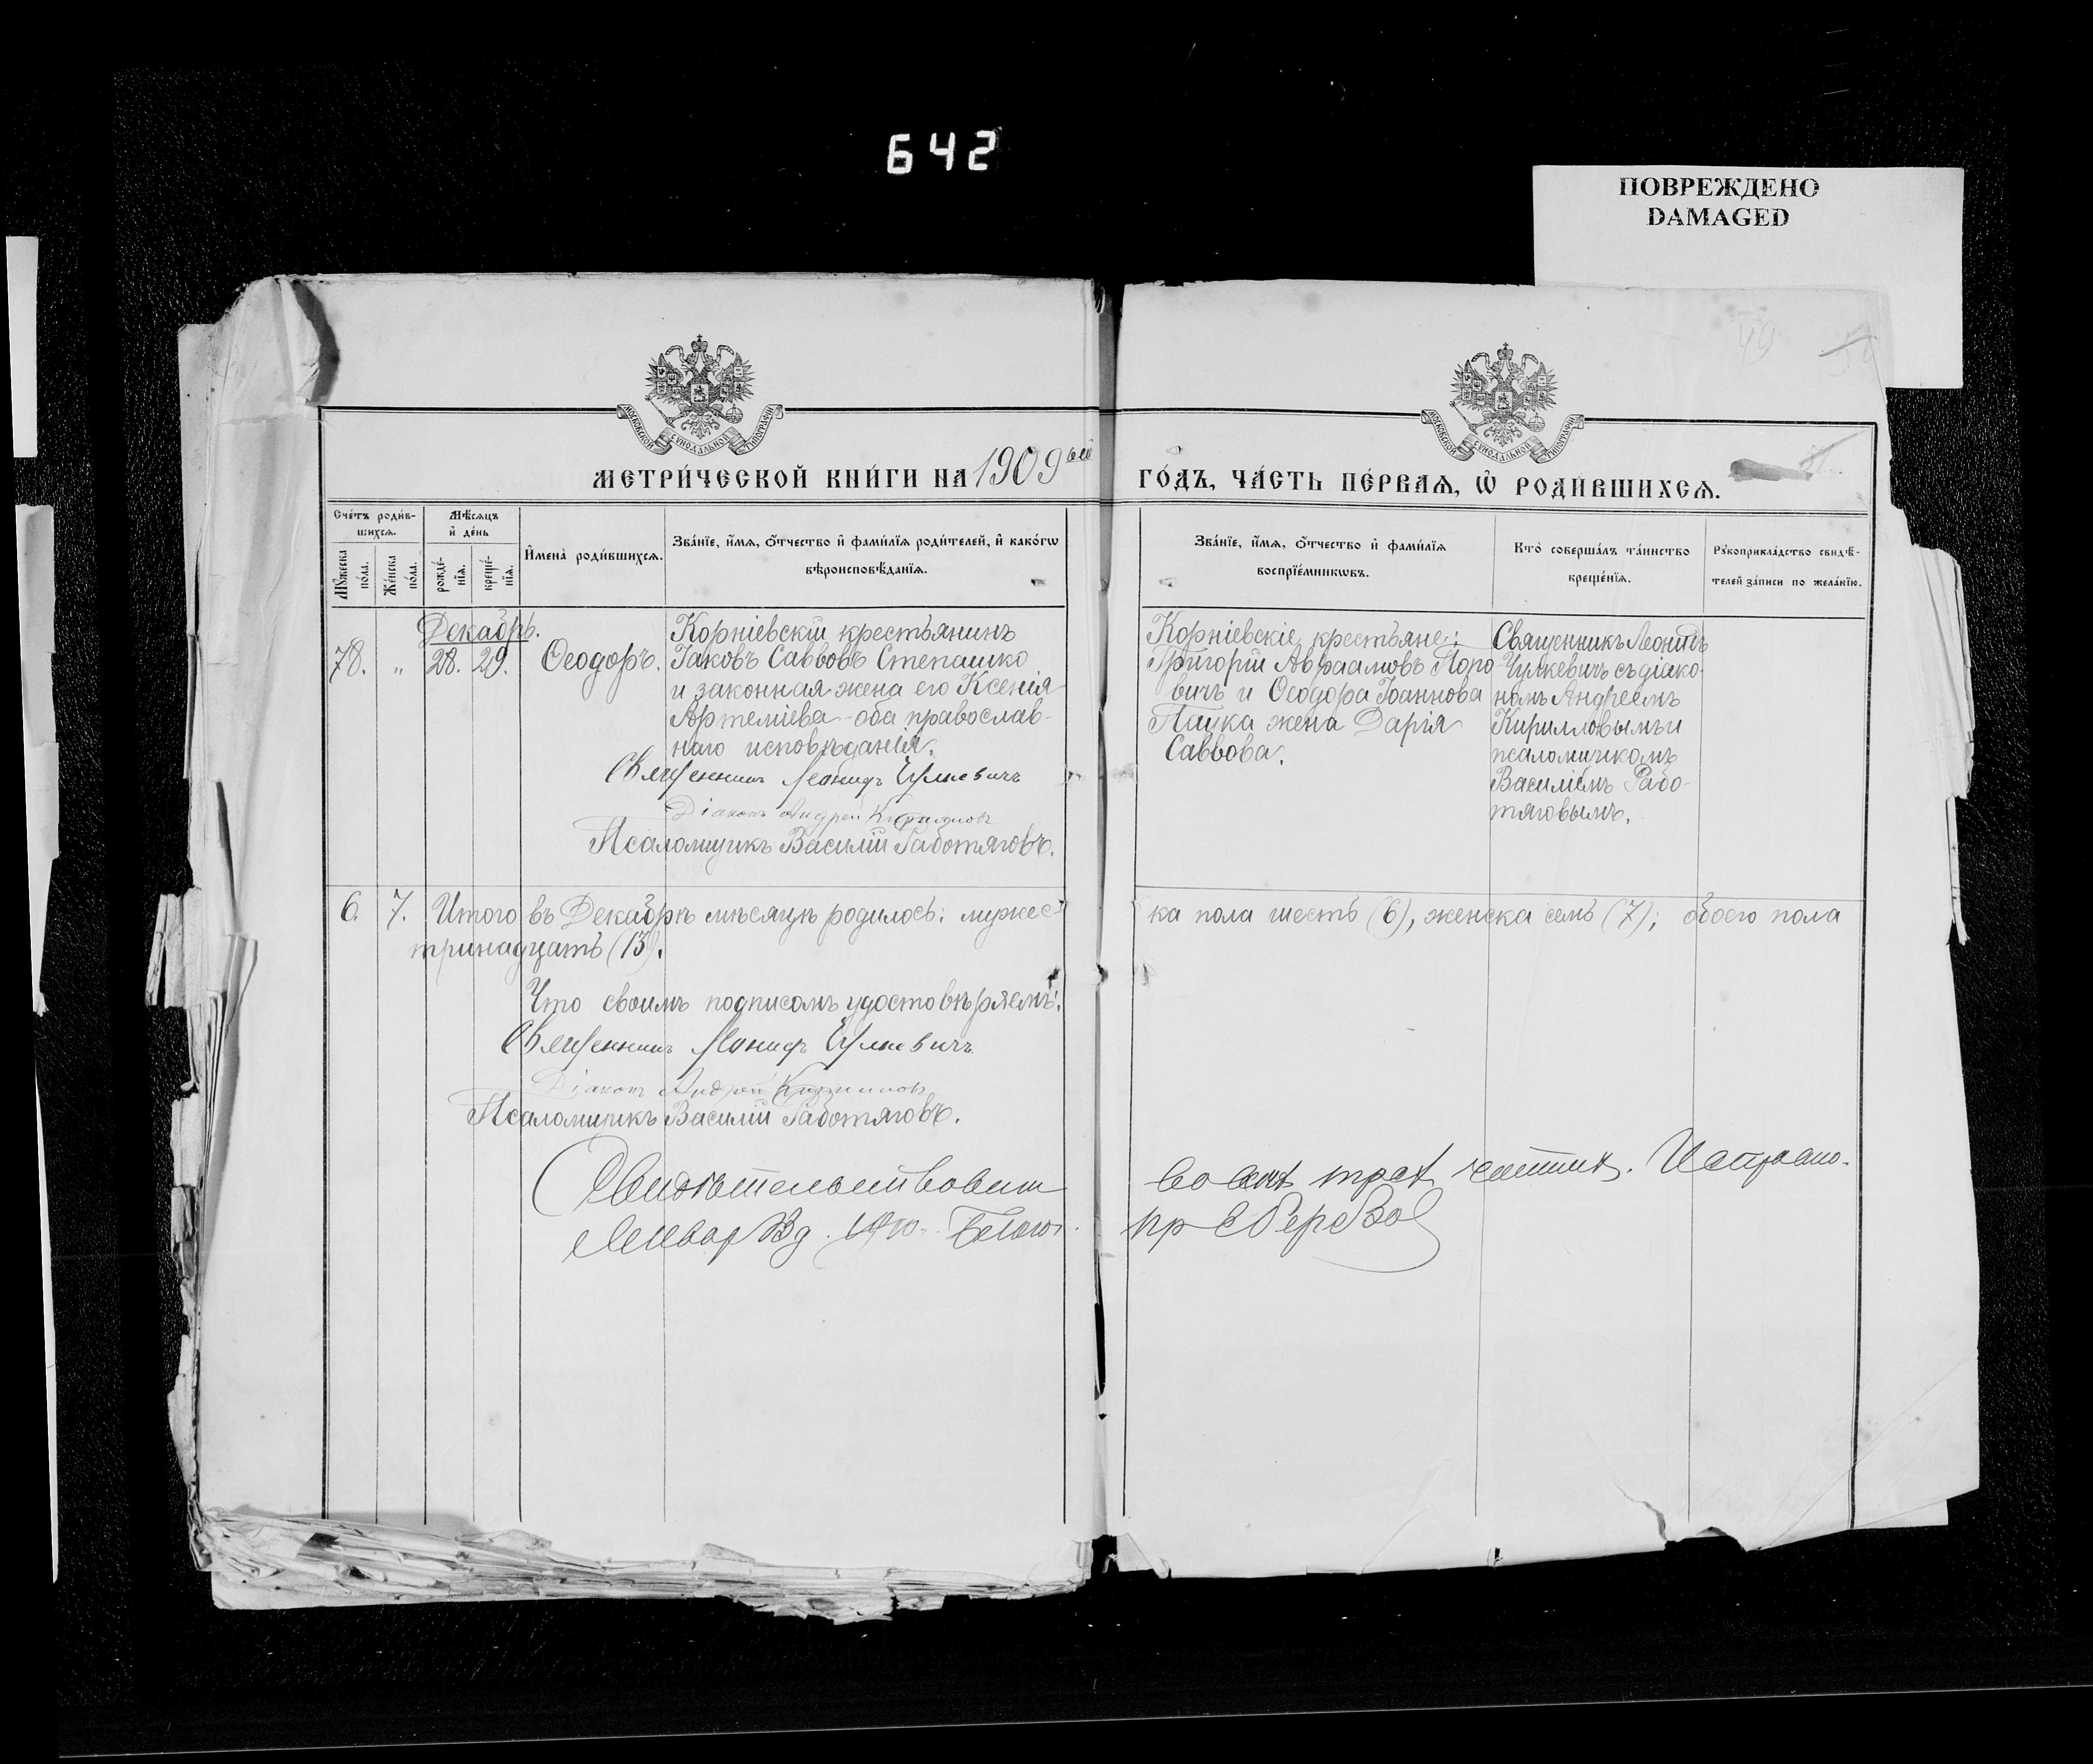 642
ПОВРЕЖДЕНО
DAMAGED
49
МОСКОВСКОЙ СѴНОДАЛЬНОЙ ТИПОГРАФІИ
МОСКОВСКОЙ СѴНОДАЛЬНОЙ ТИПОГРАФІИ
МЕТРИ́ЧЕСКОЙ КНИ́ГИ НА 1909 ГО́ДЪ, ЧА́СТЬ ПЕ́РВАѦ, Ѡ҆ РОДИ́ВШИХСѦ.
Сче́тъ роди́в-
шихсѧ.
Мꙋ́жеска по́ла.
Же́нска по́ла.
Мѣ́сѧцъ
и҆ де́нь
рожде́-
нїѧ.
креще́-
нїѧ.
И҆мена̀ роди́вшихсѧ.
Зва́нїе, и҆́мѧ, ѻ҆́тчество и҆ фами́лїѧ роди́телей, и҆ како́гѡ
вѣроисповѣ́данїѧ.
Зва́нїе, и҆́мѧ, ѻ҆́тчество и҆ фами́лїѧ
воспрїе́мникѡвъ.
Кто̀ соверша́лъ та́инство
креще́нїѧ.
Рꙋкоприкла́дство свидѣ́-
телей за́писи по жела́нїю.
Декабрь.
78. „ 28. 29. Ѳеодоръ.
Корніевскій крестьянинъ
Іаковъ Саввовъ Степашко
и законная жена его Ксенія
Артеміева - оба православ-
наго исповѣданія.
Священникъ Леонидъ Чулкевичъ
Діаконъ Андрей Кирилловъ
Псаломщикъ Василій Работяговъ.
Корніевскіе крестьяне:
Григорій Авраамовъ Попо
вичъ и Ѳеодора Іоаннова
Пацка жена Дарія
Саввова.
Священникъ Леонидъ
Чулкевичъ съ діако-
номъ Андреемъ
Кирилловымъ и
псаломщикомъ
Василіемъ Рабо-
тяговымъ.
6. 7. Итого въ Декабрѣ мѣсяцѣ родилось: мужес- ка пола шесть (6), женска семь (7); обоего пола
тринадцать (13).
Что своимъ подписомъ удостовѣряемъ:
Священникъ Леонидъ Чулкевичъ
Діаконъ Андрей Кирилловъ
Псаломщикъ Василій Работяговъ.